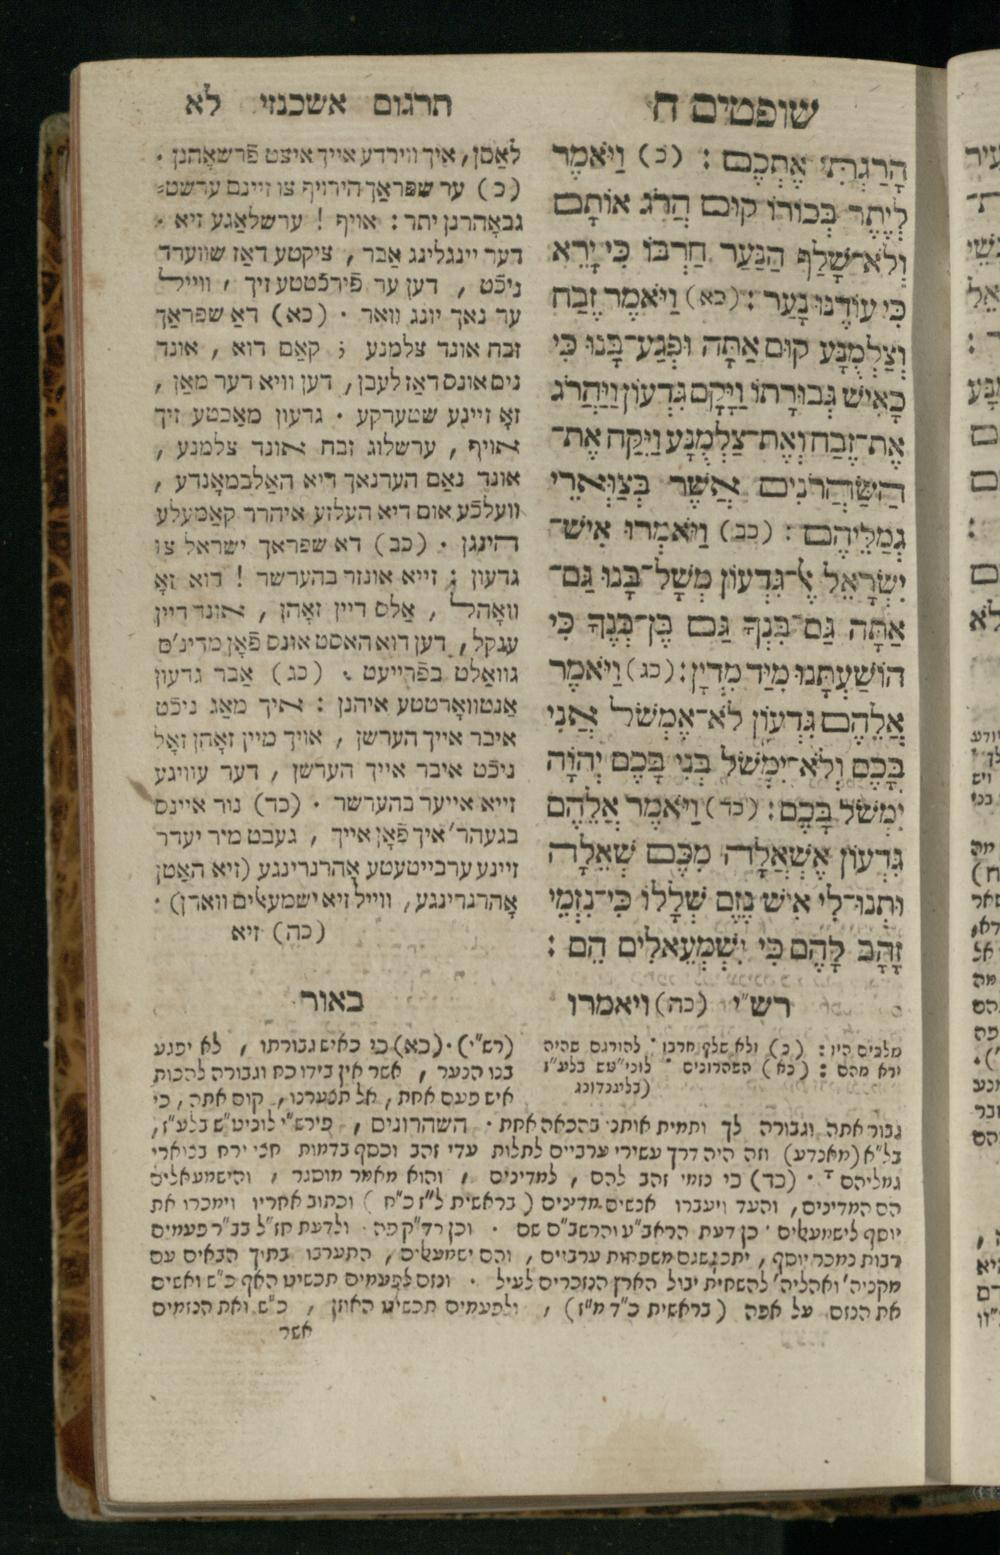 שופטים ח
הָרַגְתִּי אֶתְכֶם : (כ) וַיֹּאמֶר
לְיֶתֶר בְּכוֹרוֹ קוּם הֲרֹג אוֹתָם
וְלֹא־שָׁלַף הַנַּעַר חַרְבּוֹ כִּי יָרֵא
כִּי עוֹדֶנּוּ נָעַר : (כא) וַיֹּאמֶר זֶבַח
וְצַלְמֻנָּע קוּם אַתָּה וּפְגַע־בָּנוּ כִּי
כָאִישׁ גְּבוּרָתוֹ וַיָּקָם גִּדְעוֹן וַיַּהֲרֹג
אֶת־זֶבַח וְאֶת־צַלְמֻנָּע וַיִּקַּח אֶת־
הַשַּׂהֲרֹנִים אֲשֶׁר בְּצַוְּארֵי
גְמַלֵּיהֶם : (כב) וַיֹּאמְרוּ אִישׁ־
יִשְׂרָאֵל אֶל־גִּדְעוֹן מְשָׁל־בָּנוּ גַּם־
אַתָּה גַּם־בִּנְךָ גַּם בֶּן־בְּנֶךָ כִּי
הוֹשַׁעְתָּנוּ מִיַּד מִדְיָן : (כג) וַיֹּאמֶר
אֲלֵהֶם גִּדְעוֹן לֹא־אֶמְשֹׁל אֲנִי
בָּכֶם וְלֹא־יִמְשֹׁל בְּנִי בָּכֶם יְהוָֹה
יִמְשֹׁל בָּכֶם : (כד) וַיֹּאמֶר אֲלֵהֶם
גִּדְעוֹן אֶשְׁאֲלָה מִכֶּם שְׁאֵלָה
וּתְנוּ־לִי אִישׁ נֶזֶם שְׁלָלוֹ כִּי־נִזְמֵי
זָהָב לָהֶם כִּי יִשְׁמְעֵאלִים הֵם :
תרגום אשכנזי לא
לאַסן, איך ווירדע אייך איצט פֿרשאָהנן .
(כ) ער שפראַך הירויף צו זיינם ערשט=
גבאָהרנן יתר : אויף ! ערשלאַגע זיא .
דער יינגלינג אַבר , ציקטע דאַז שווערד
ניכֿט , דען ער פֿירכֿטטע זיך , ווייל
ער נאך יונג וואר . (כא) דאַ שפראַך
זבח אונד צלמנע ; קאָם דוא , אונד
נים אונס דאַז לעבן, דען וויא דער מאַן ,
זאָ זיינע שטערקע . גדעון מאַכטע זיך
אויף , ערשלוג זבח אונד צלמנע ,
אונד נאַם הערנאך דיא האַלבמאָנדע ,
וועלכֿע אום דיא העלזע איהרר קאַמעלע
הינגן . (כב) דא שפראך ישראל צו
גדעון ; זייא אונזר בהערשר ! דוא זאָ
וואָהל , אַלס דיין זאָהן , אונד דיין
ענקל, דען דוא האסט אונס פֿאָן מדינ'ם
גוואַלט בפֿרייעט . (כג) אַבר גדעון
אַנטוואָרטטע איהנן : איך מאַג ניכֿט
איבר אייך הערשן , אויך מיין זאָהן זאָל
ניכֿט איבר אייך הערשן , דער עוויגע
זייא אייער בהערשר . (כד) נור איינס
בגעהר' איך פֿאָן אייך , געבט מיר יעדר
זיינע ערבייטעטע אָהרנרינגע (זיא האַטן
אָהרנרינגע, ווייל זיא ישמעאלים ווארן) .
(כה) זיא
רש"י (כה) ויאמרו
מלבים היו : (כ) ולא שלף חרבו . להורגם שהיה
ירא מהם : (כא) השהרונים . לוני"טש בלע"ז
(בלינגדונג
באור
(רש"י) . (כא) כי כאיש גבורתו , לא יפגע
בנו הנער , אשר אין בידו כח וגבורה להכות
איש פעם אחת, אל תצערנו, קום אתה, כי
גבור אתה וגבורה לך ותמית אותנו בהכאה אחת . השהרונים , פירש"י לוניט"ש בלע"ז,
בל"א (מאנדע) וזה היה דרך עשירי ערביים לתלות עדי זהב וכסף בדמות חצי ירח בצוארי
גמליהם . (כד) כי נזמי זהב להם , למדינים , והוא מאמר מוסגר , והישמעאלים
הם המדינים, והעד ויעברו אנשים מדינים (בראשית ל"ז כ"ח ) וכתוב אחריו וימכרו את
יוסף לישמעאלים . כן דעת הראב"ע והרשב"ם שם . וכן רד"ק פה . ולדעת חז"ל בב"ר פעמים
רבות נמכר יוסף, משפחות ערביים , והם ישמעאלים, התערבו בתוך הבאים עם
מקניה' ואהליה' להשחית יבול הארץ הנזכרים לעיל . ונזם לפעמים תכשיט האף כ"ש ואשים
את הנזם על אפה (בראשית כ"ד מ"ז) , ולפעמים תכשיט האוזן , כ"ש ואת הנזמים
אשר